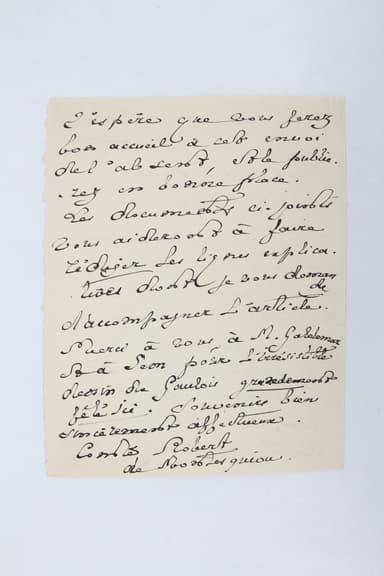 J'espère que vous ferez
bon accueil à cet envoi
de l'absent, et le publie-
-rez en bonne place.
Les documents ci-joints
vous aideront à faire
rédiger les lignes explica-
tives dont je vous deman
de
d'accompagner l'article.
Merci à vous, à M.
et à pour l'irrésistible
dessin du Gaulois grandement
fêté ici. Souvenirs bien
sincèrement affectueux.
Comte Robert
de Montesquiou.